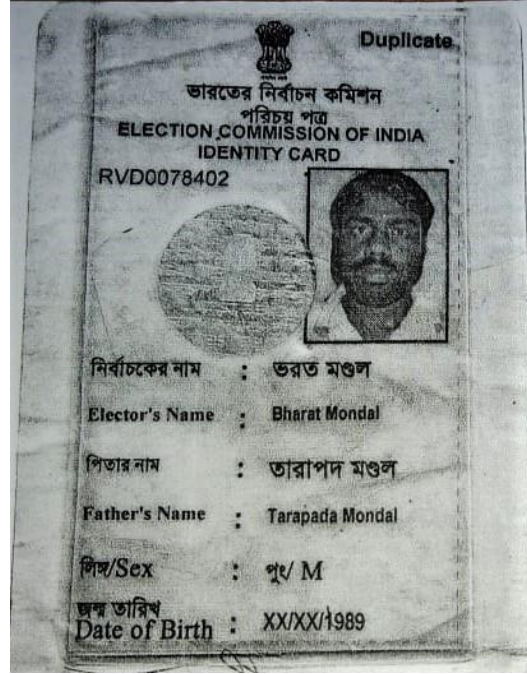 Duplicate
ভারতের নির্বাচন কমিশন
পরিচয় পত্র
ELECTION COMMISSION OF INDIA
IDENTITY CARD
RVD0078402
নির্বাচকের নাম : ভরত মণ্ডল
Elector's Name : Bharat Mondal
পিতার নাম : তারাপদ মণ্ডল
Father's Name : Tarapada Mondal
লিঙ্গ/Sex : পুং/ M
জন্ম তারিখ
Date of Birth : XX/XX/1989